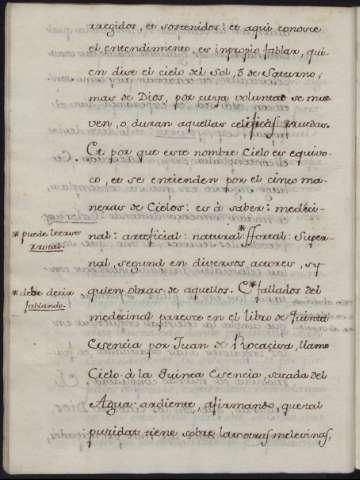 rregidos, et sostenidos: et aqui conosce
el entendimiento, es inpropio fablar, qui-
en dise el cielo del Sol, ò de Saturno;
mas de Dios, por cuya voluntat se mue-
ven, o duran aquellas ruedas.
Et por que este nombre Cielo es equivo-
co, et se entienden por el cinco ma-
neras de Cielos: es à saber: medeci-
nal: artificial: natural *ffortal: Super-
nal, segund en diversos actores, sy
quier obras de aquellos. C* fallados del
medecinal paresce en el libro de quinta
Esencia por Juan de Rocacisa, llamo
Cielo à la Quinea Esencia, sacada del
Agua-ardiente, afirmando, que tal
puridat tiene sobre las otras melecinas,
* puede leerse
* debe decir
fablando.